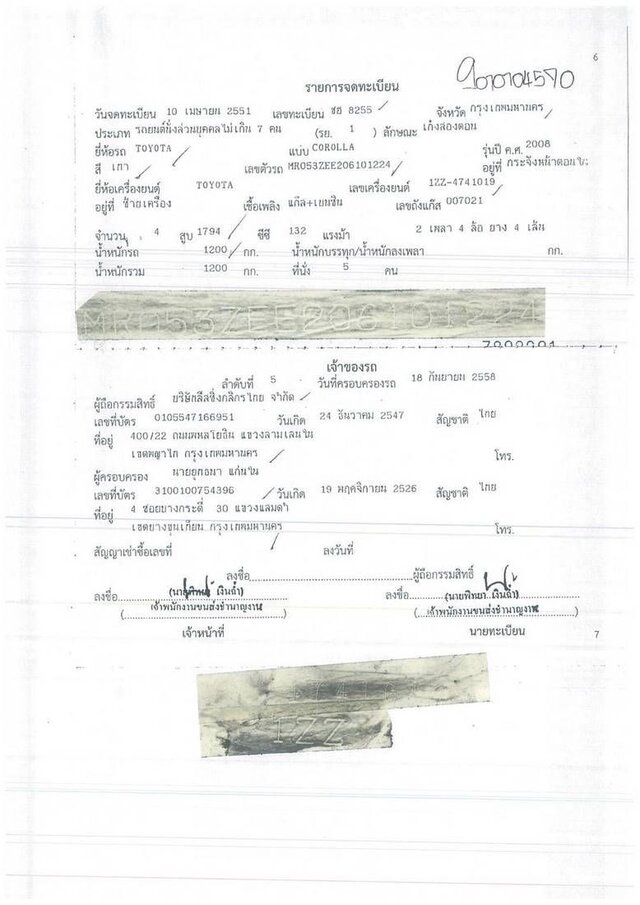 6
900104570
รายการจดทะเบียน
วันจดทะเบียน 10 เมษายน 2551 เลขทะเบียน ชฮ 8255 จังหวัด กรุงเทพมหานคร
ประเภท รถยนต์นั่งส่วนบุคคลไม่เกิน 7 คน (รย. 1 ) ลักษณะ เก๋งสองตอน
ยี่ห้อรถ TOYOTA แบบ COROLLA รุ่นปี ค.ศ. 2008
สี เทา เลขตัวรถ MR053ZEE206101224 อยู่ที่ กระจังหน้าตอนใน
ยี่ห้อเครื่องยนต์ TOYOTA เลขเครื่องยนต์ 1ZZ-4741019
อยู่ที่ ซ้ายเครื่อง เชื้อเพลิง แก๊ส+เบนซิน เลขถังแก๊ส 007021
จำนวน 4 สูบ 1794 ซีซี 132 แรงม้า 2 เพลา 4 ล้อ ยาง 4 เส้น
น้ำหนักรถ 1200 กก. น้ำหนักบรรทุก/น้ำหนักลงเพลา กก.
น้ำหนักรวม 1200 กก. ที่นั่ง 5 คน
MR053ZEE206101224
เจ้าของรถ
ลำดับที่ 5 วันที่ครอบครองรถ 18 กันยายน 2558
ผู้ถือกรรมสิทธิ์ บริษัทลีสซิ่งกสิกรไทย จำกัด
เลขที่บัตร 0105547166951 วันเกิด 24 ธันวาคม 2547 สัญชาติ ไทย
ที่อยู่ 400/22 ถนนพหลโยธิน แขวงสามเสนใน
เขตพญาไท กรุงเทพมหานคร โทร.
ผู้ครอบครอง นายยุทธนา แก่นใน
เลขที่บัตร 3100100754396 วันเกิด 19 พฤศจิกายน 2526 สัญชาติ ไทย
ที่อยู่ 4 ซอยบางกระดี่ 30 แขวงแสมดำ
เขตบางขุนเทียน กรุงเทพมหานคร โทร.
สัญญาเช่าซื้อเลขที่ ลงวันที่
ลงชื่อ ผู้ถือกรรมสิทธิ์
ลงชื่อ (นายพิทยา เงินถ้ำ) ลงชื่อ (นายพิทยา เงินถ้ำ)
(เจ้าพนักงานขนส่งชำนาญงาน) (เจ้าพนักงานขนส่งชำนาญงาน)
เจ้าหน้าที่ นายทะเบียน 7
1ZZ